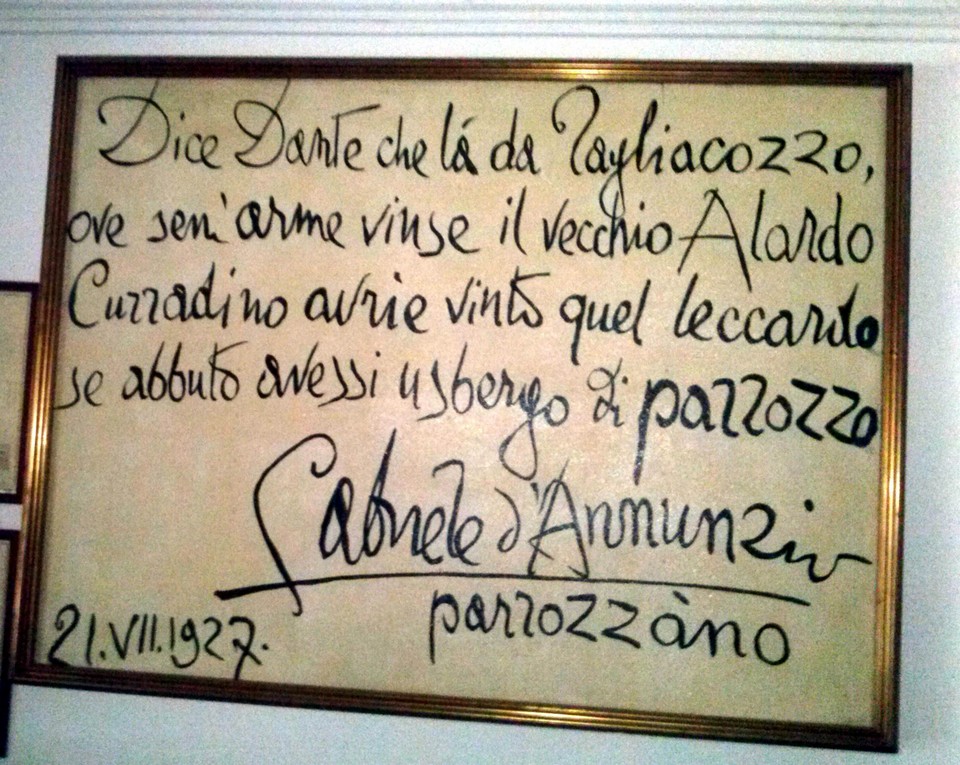 Dice Dante che là da Tagliacozzo,
ove senz'arme vinse il vecchio Alardo
Curradino avrie vinto quel leccardo
se abbuto avessi usbergo di parrozzo
Gabriele d'Annunzio
parrozzàno
21.VII.1927.